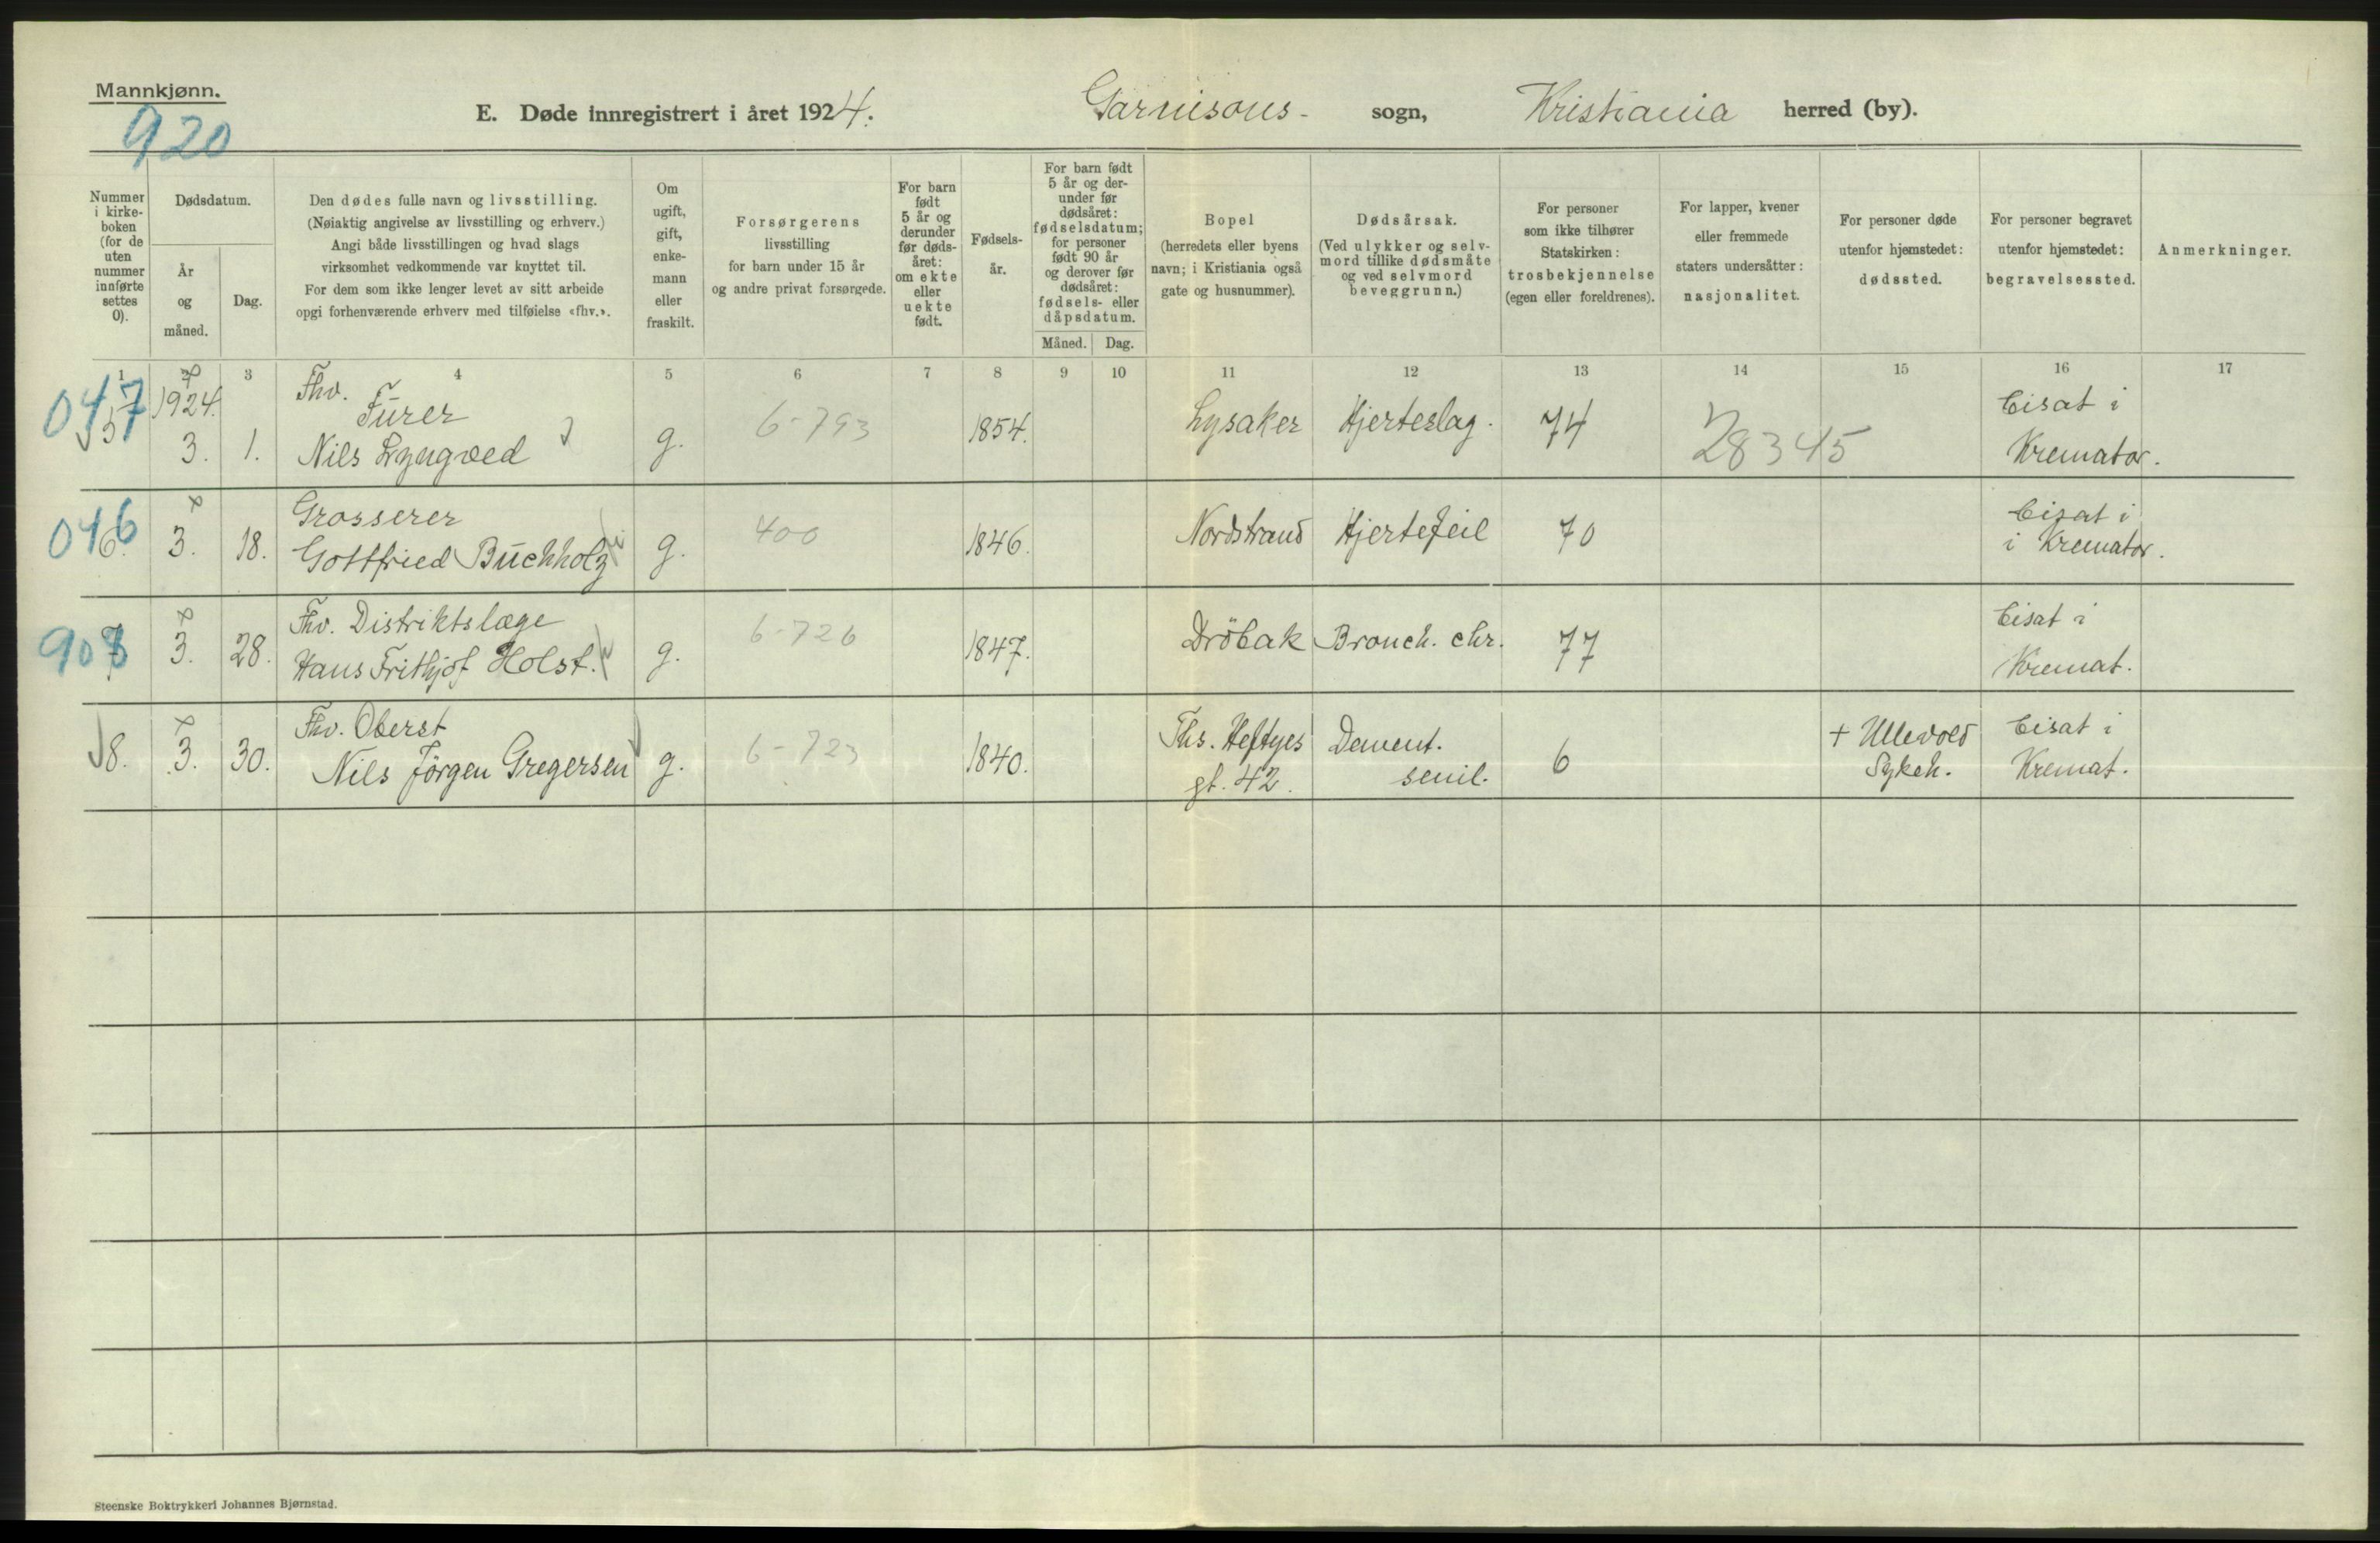 Mannkjønn.
920
E. Døde innregistrert i året 1924. Garnisons- sogn, Kristiania herred (by).
Nummer i kirke-boken (for de uten nummer innførte settes 0).
Dødsdatum.
År og måned.
Dag.
Den dødes fulle navn og livsstilling.
(Nøiaktig angivelse av livsstilling og erhverv.)
Angi både livsstillingen og hvad slags
virksomhet vedkommende var knyttet til.
For dem som ikke lenger levet av sitt arbeide
opgi forhenværende erhverv med tilføielse «fhv.».
Om ugift, gift, enke-mann eller fraskilt.
Forsørgerens
livsstilling
for barn under 15 år
og andre privat forsørgede.
For barn født 5 år og derunder før døds-året: om ekte eller uekte født.
Fødsels-år.
For barn født 5 år og der-under før dødsåret: fødselsdatum; for personer født 90 år og derover før dødsåret: fødsels- eller dåpsdatum.
Måned. Dag.
Bopel
(herredets eller byens
navn; i Kristiania også
gate og husnummer).
Dødsårsak.
(Ved ulykker og selv-
mord tillike dødsmåte
og ved selvmord
beveggrunn.)
For personer
som ikke tilhører
Statskirken:
trosbekjennelse
(egen eller foreldrenes).
For lapper, kvener
eller fremmede
staters undersåtter:
nasjonalitet.
For personer døde
utenfor hjemstedet:
dødssted.
For personer begravet
utenfor hjemstedet:
begravelsessted.
Anmerkninger.
1 3 4 5 6 7 8 9 10 11 12 13 14 15 16 17
047 5 1924. 3. 1. Fhv. Fürer
Nils Lyngved g. 6-793 1854. Lysaker Hjerteslag. 74 28345 Bisat i
Kremator.
046 6. 3. 18. Grosserer
Gottfried Buchholz g. 400 1846. Nordstrand Hjertefeil 70 Bisat i
i Kremator.
908 7 3. 28. Fhv. Distriktslæge
Hans Frithjof Holst. g. 6-726 1847. Dröbak Bronch. chr. 77 Bisat i
Kremat.
8. 3. 30. Fhv. Oberst
Nils Jörgen Gregersen g. 6-723 1840. Ths. Heftyes
gt. 42. Dement.
senil. 6 + Ullevold
Sykeh. Bisat i
Kremat.
Steenske Boktrykkeri Johannes Bjørnstad.